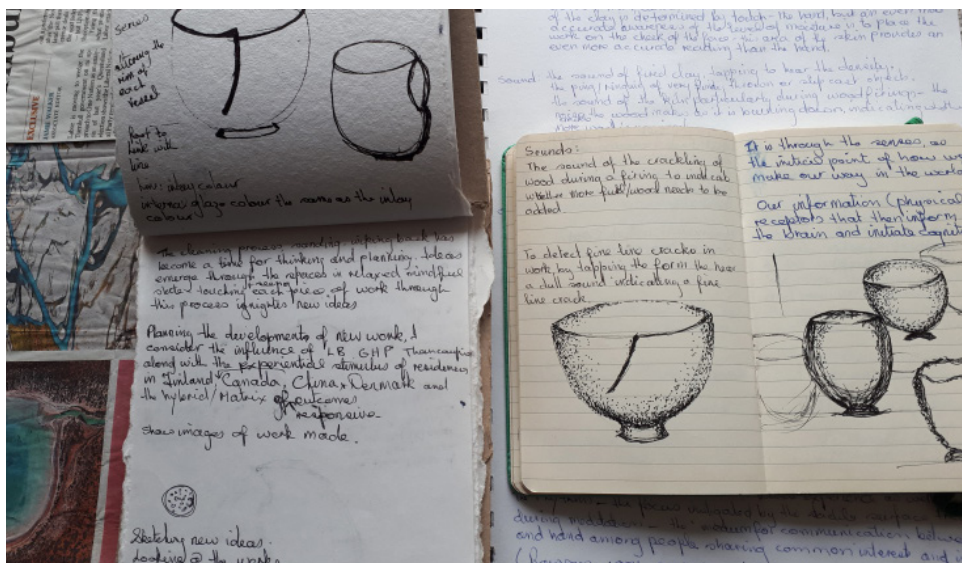 EXCLUSIVE
Series
altering the
rim of
each
vessel
Foot to
link with
line
line: inlay colour
interior glaze colour the same as the inlay
colour
The cleaning process sanding, wiping back has
become a time for thinking and planning. Ideas
emerge through the relaxed mindful
state touching each piece of work through
this process ignights new ideas
Planning the developments of new work, I
consider the influence of LB GHP
along with the experiential stimulus of residencies
in Finland, Canada, China, Denmark and
the hybrid/Matrix of outcomes
responsive
Show images of work made.
Sketching new ideas.
Looking @ the work
of the clay is determined by touch - the hand, but an even more
accurate awareness of the level of moisture is to place the
work on the cheek of the face - this area of the skin provides an
even more accurate reading than the hand.
Sound: the sound of fired clay, tapping to hear the density.
of very finely thrown or slip cast objects.
the sound of the kiln particularly during woodfirings - the
noise the wood makes as it is burning down, indicating whether
more wood is
Sounds:
The sound of the crackling of
wood during a firing to indicate
whether more fuel/wood needs to be
added.
To detect fine line cracks in
work, by tapping the form the hear
a dull sound indicating a fine
line crack.
It is through the senses, as
the initial point of how we
make our way in the world
Our information (physical
receptors that then inform
the brain and initiate cognit
during meditation - the communication between
and hand among people sharing common interest and